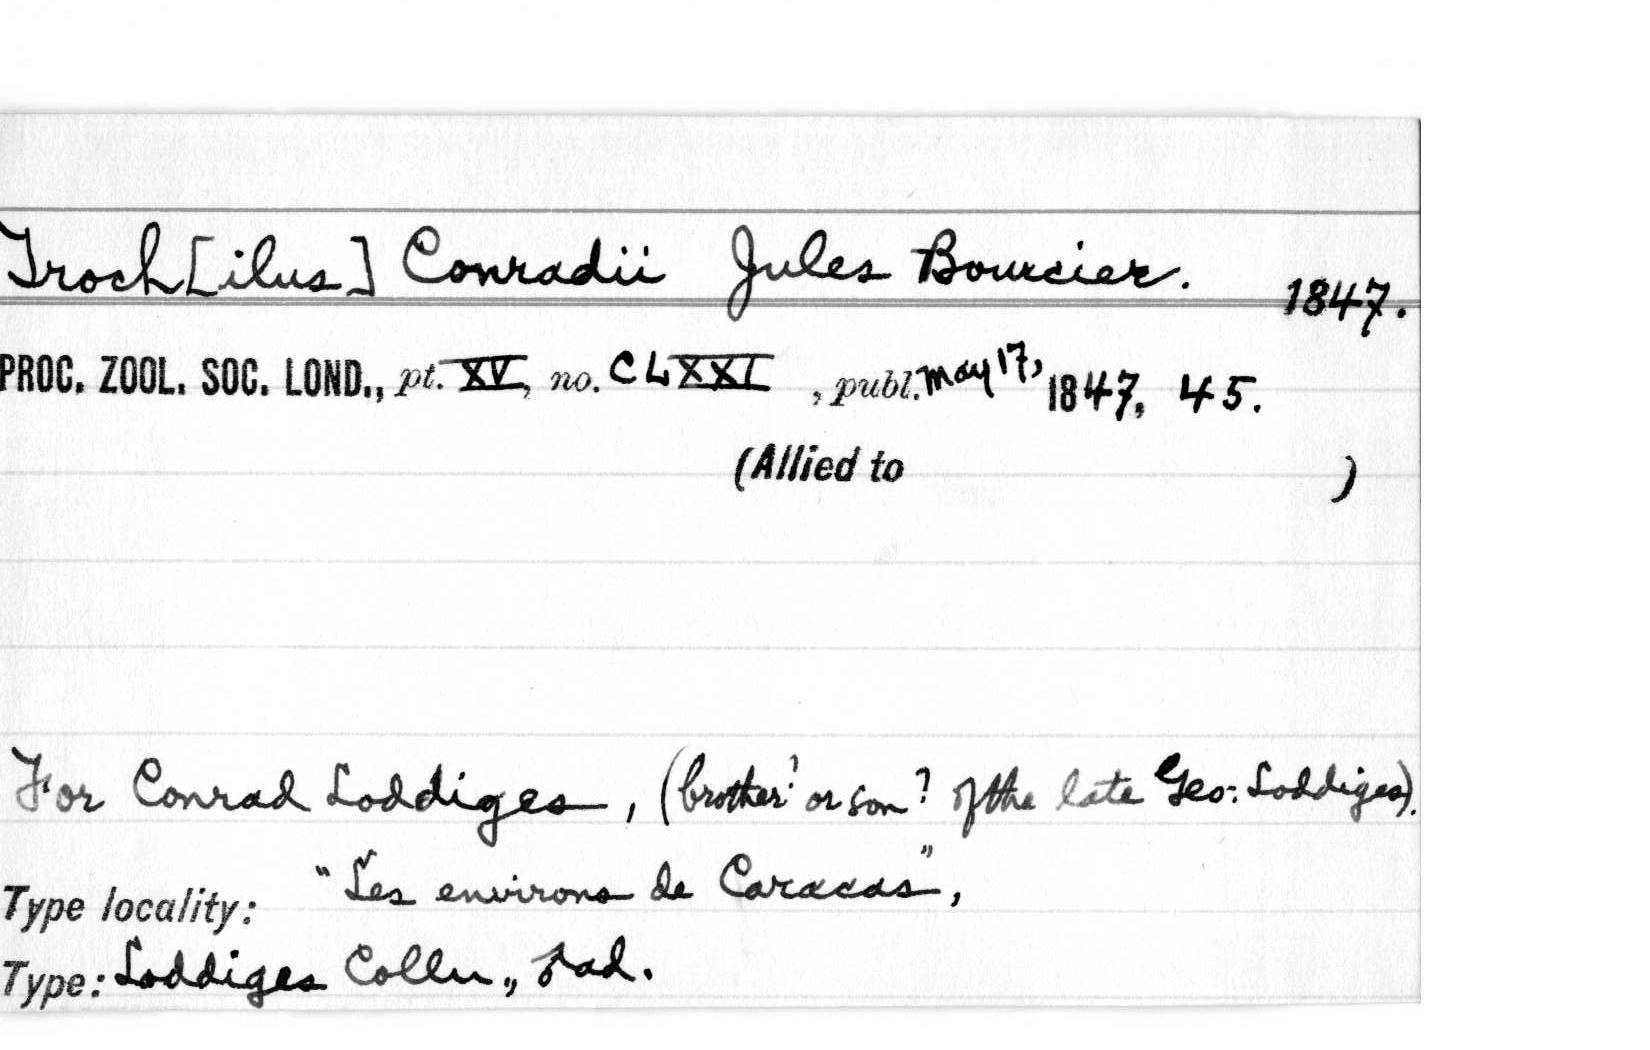 Troch[ilus] Conradii Jules Bourcier. 1847.
PROC. ZOOL. SOC. LOND., pt. XV, no. CLXXI , publ. May 17, 1847, 45.
(Allied to )
For Conrad Loddiges, (brother? or son? of the late Geo: Loddiges).
Type locality: "Les environs de Caracas",
Type: Loddiges Colln., ad.